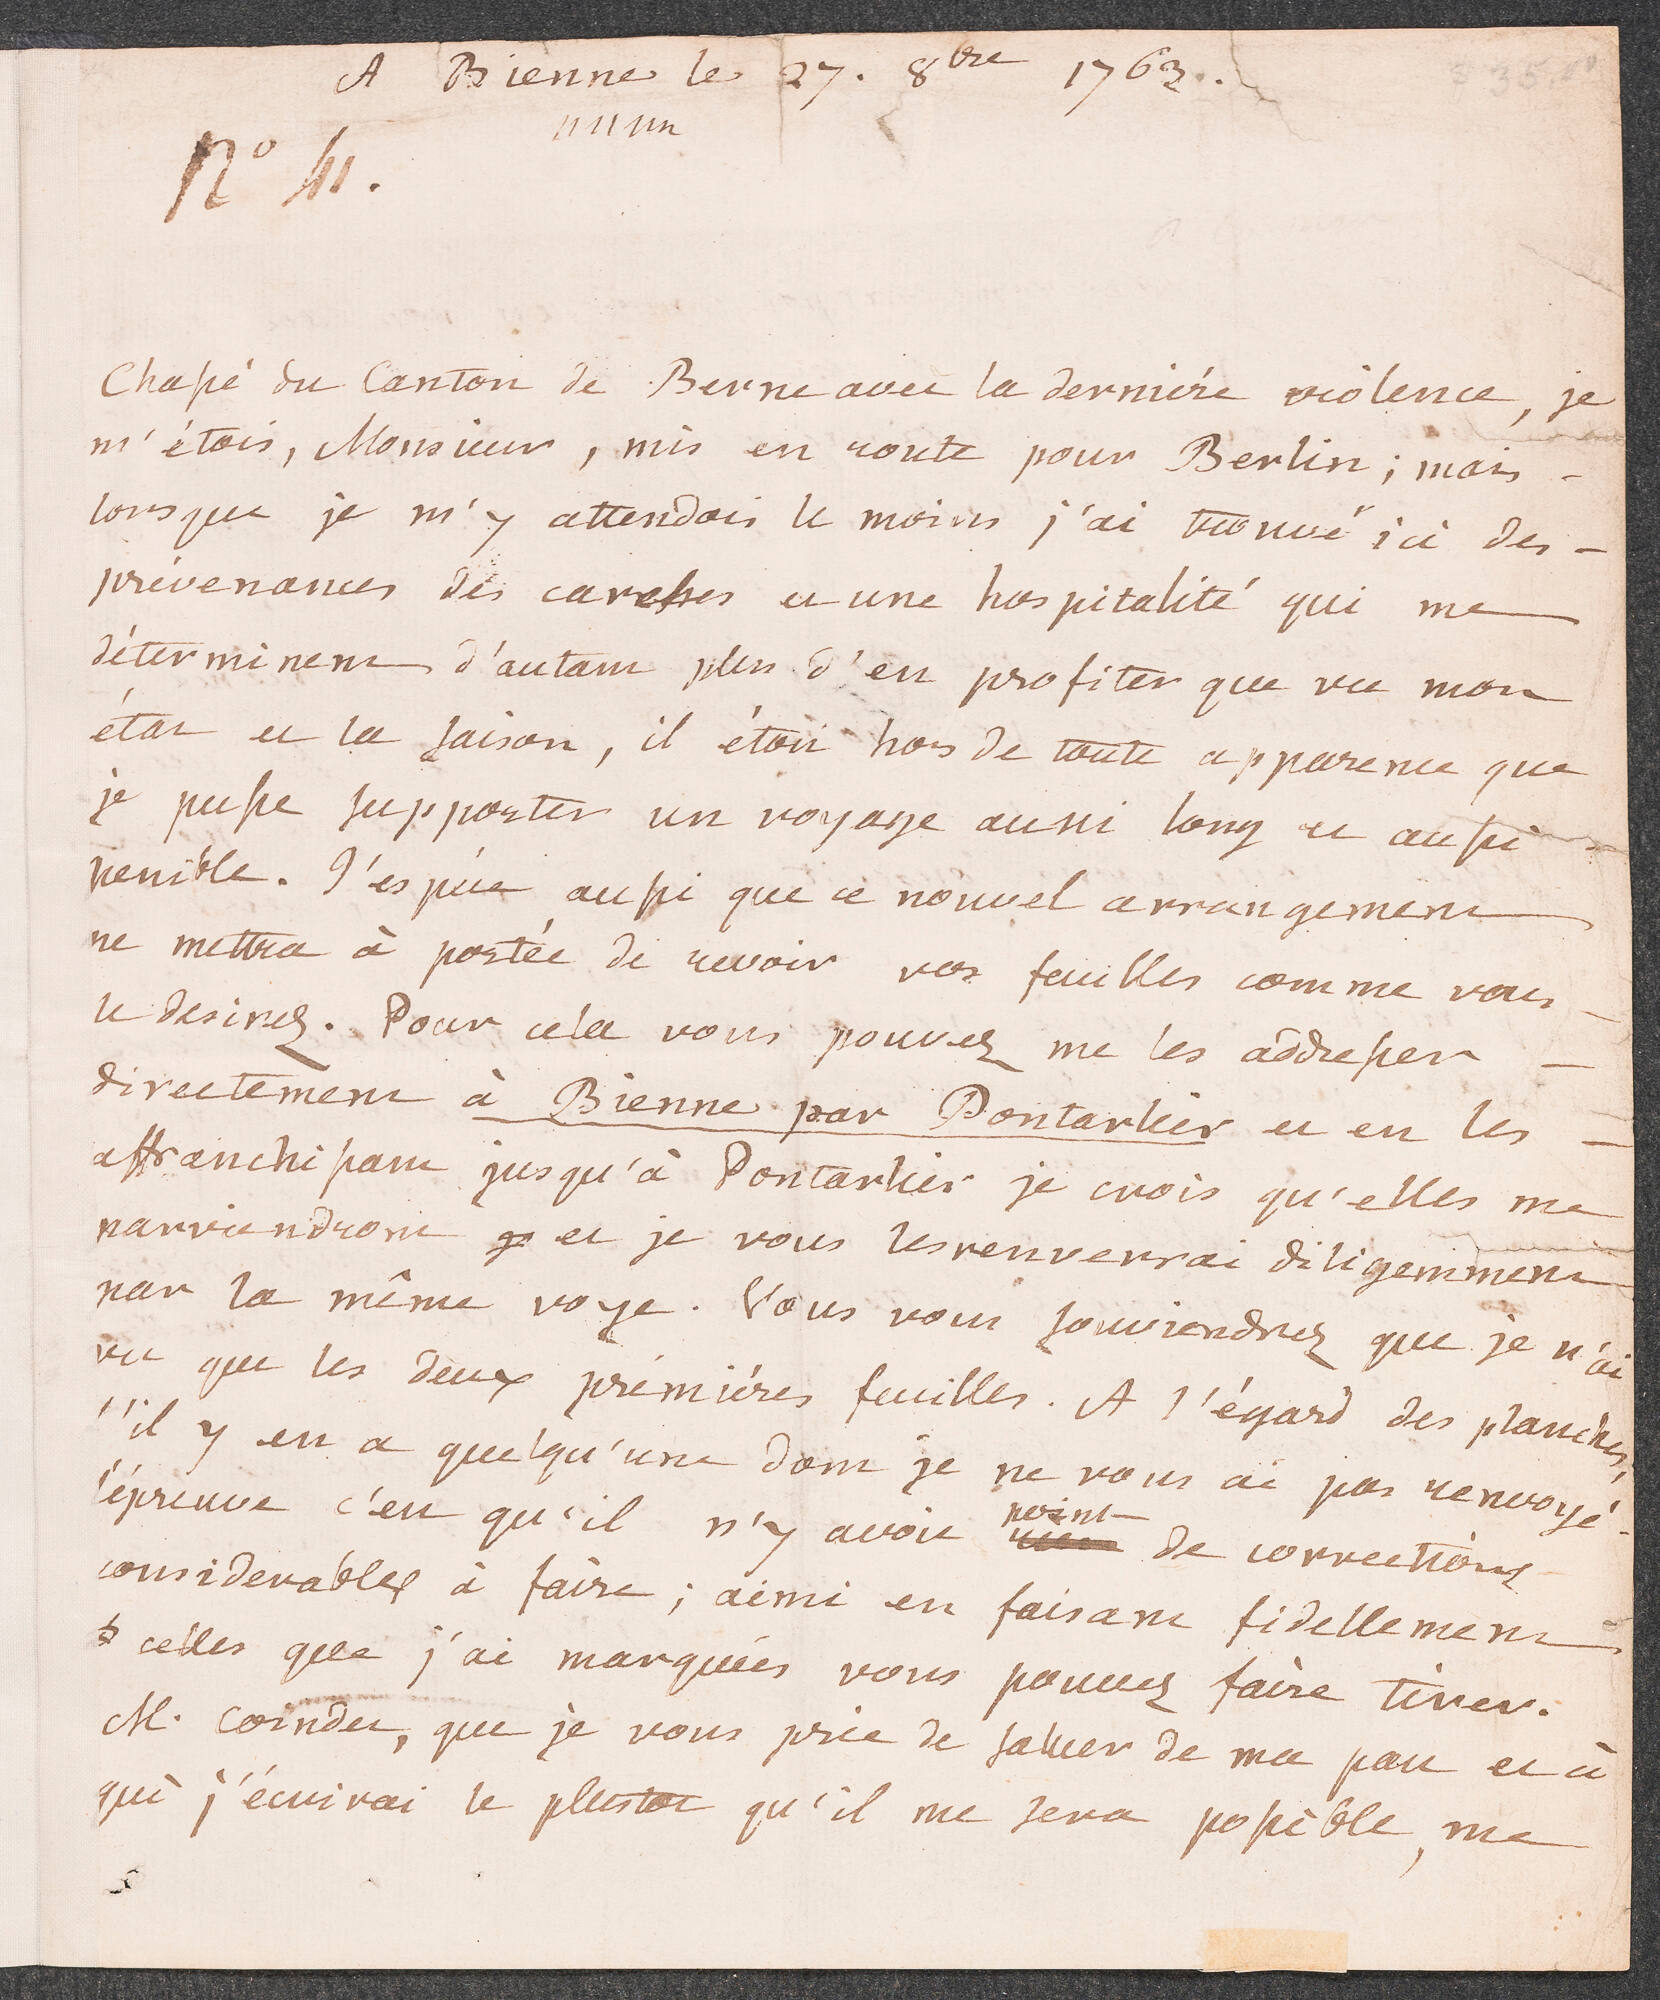 A Bienne le 27. 8bre 1763.
N° 41.
Chassé du Canton de Berne avec la derniére violence, je
m'étois, Monsieur, mis en route pour Berlin; mais -
lorsque je m'y attendois le moins j'ai trouvé ici des -
prévenances des caresses et une hospitalité qui me
déterminent d'autant plus d'en profiter que vu mon
état et la saison, il étoit hors de toute apparence que
je pusse supporter un voyage aussi long et aussi
penible. J'espére aussi que ce nouvel arrangement
me mettra à portée de revoir vos feuilles comme vous
le desirez. Pour cela vous pouvez me les addresser -
directement à Bienne par Pontarlier et en les -
affranchissant jusqu'à Pontarlier je crois qu'elles me
parviendront et je vous les renverrai diligemment
par la même voye. Vous vous souviendrez que je n'ai
vu que les deux prémiéres feuilles. A l'égard des planches,
s'il y en a quelqu'une dont je ne vous ai pas renvoyé
l'épreuve c'est qu'il n'y avoit point de corrections
considerables à faire; ainsi en faisant fidellement
celles que j'ai marquées vous pouvez faire tirer.
M. Coindet, que je vous prie de saluer de ma part et à
qui j'écrirai le plustot qu'il me sera possible, me